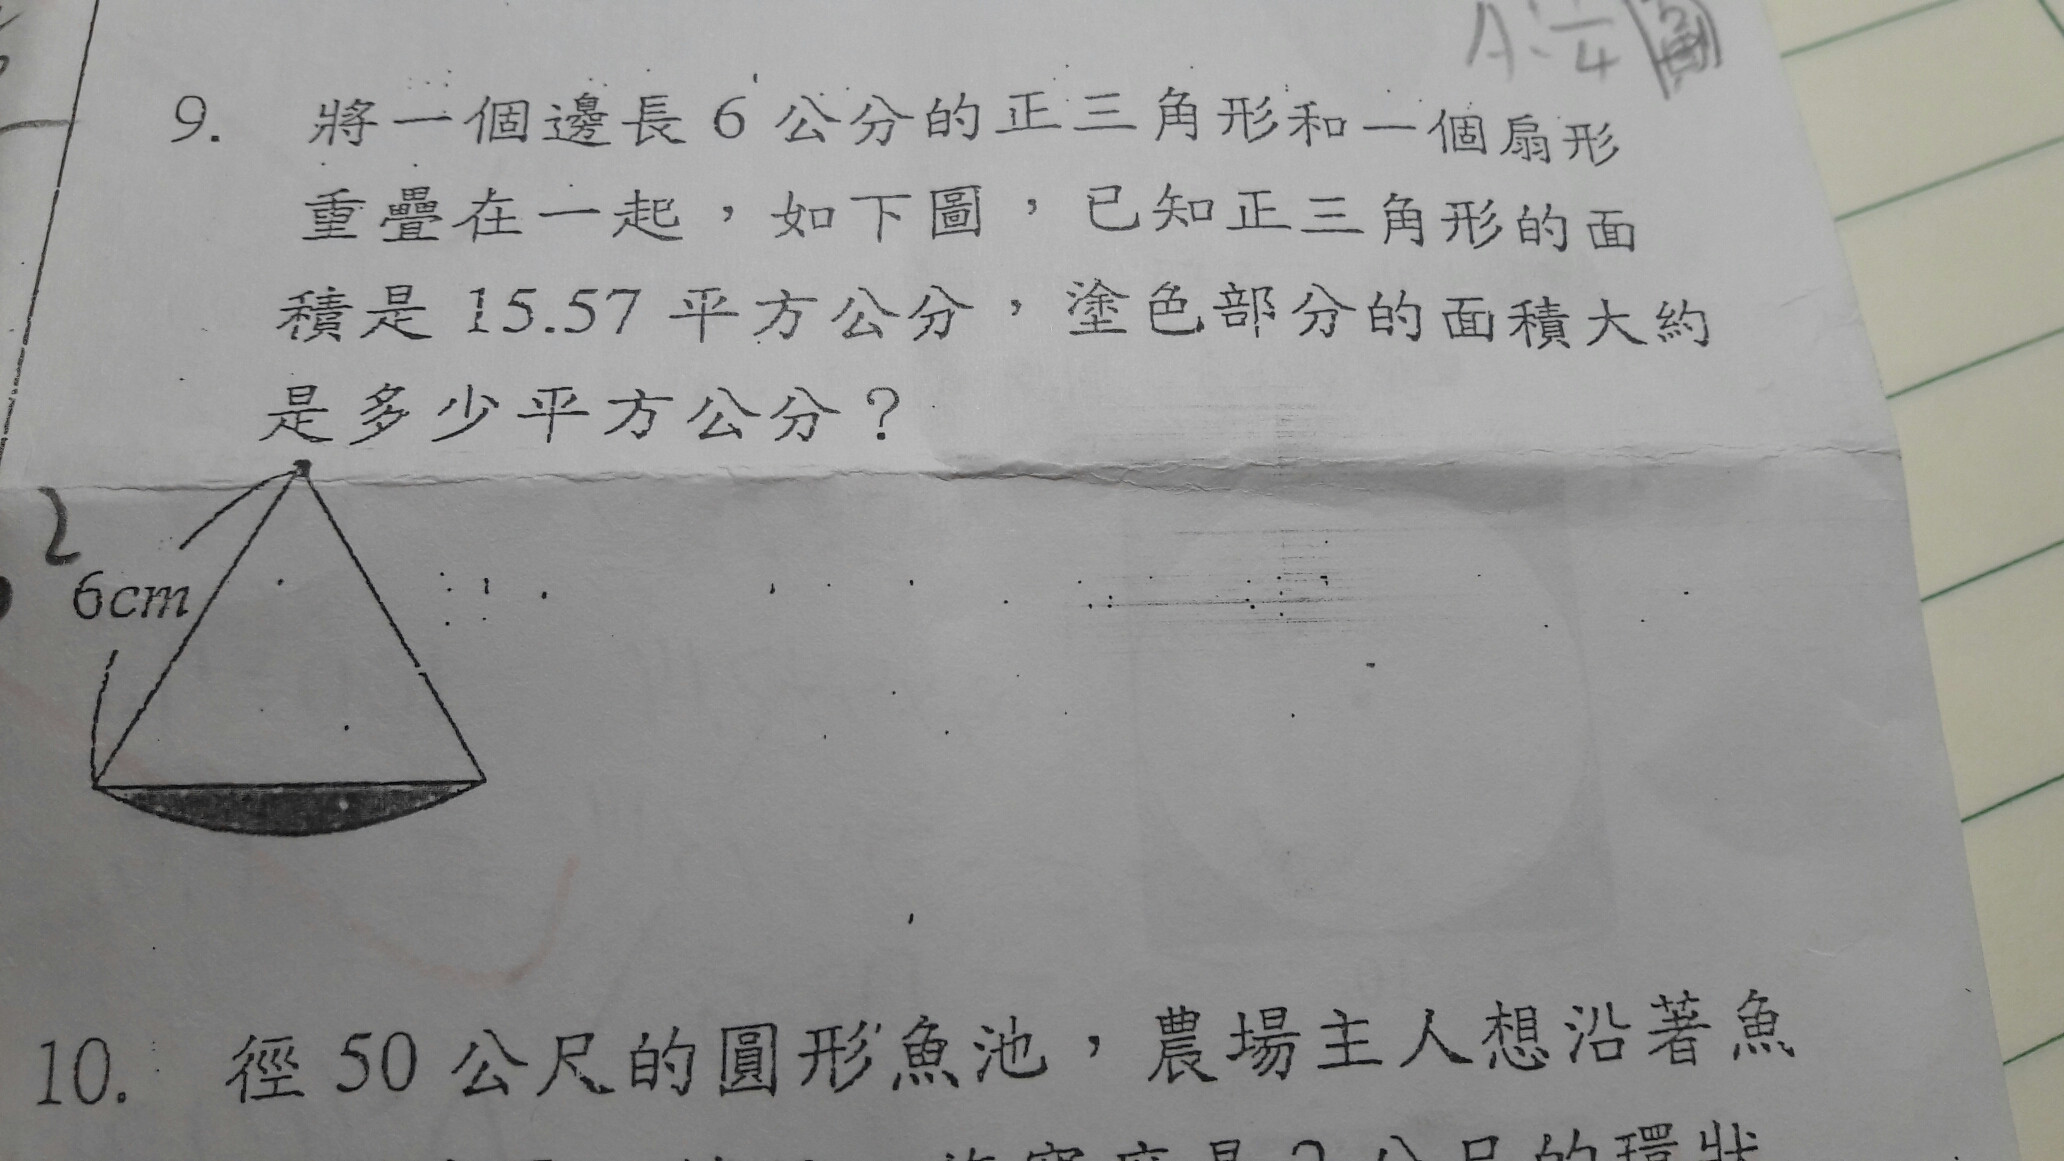 A:1/4圓
9. 將一個邊長6公分的正三角形和一個扇形
重疊在一起，如下圖，已知正三角形的面
積是15.57平方公分，塗色部分的面積大約
是多少平方公分？
6cm
10. 徑50公尺的圓形魚池，農場主人想沿著魚